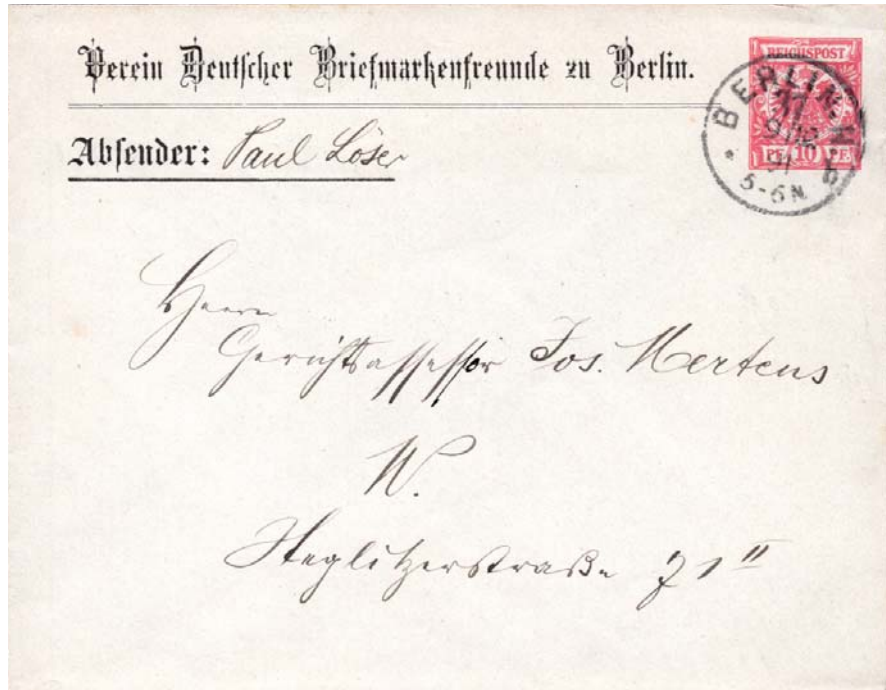 Verein Deutscher Briefmarkenfreunde zu Berlin.
REICHSPOST
PF 10 PF
BERLIN W.
91
5-6N.
Absender: Paul Löser
Herrn
Gerichtsassessor Jos. Mertens
W.
Steglitzerstraße 71 II